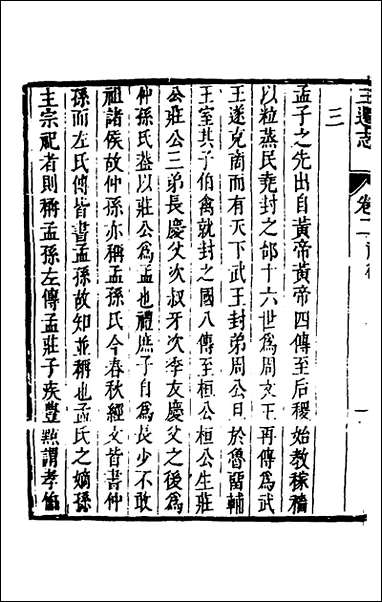 三遷志 卷二
三
孟子之先出自黃帝黃帝四傳至后稷始教稼穡
以粒蒸民堯封之邰十六世爲周文王再傳爲武
王遂克商而有天下武王封弟周公旦於魯留輔
王室其子伯禽就封之國八傳至桓公桓公生莊
公莊公三弟長慶父次叔牙次季友慶父之後爲
仲孫氏盖以莊公爲孟也禮庶子自爲長少不敢
祖諸侯故仲孫亦稱孟孫氏今春秋經文皆書仲
孫而左氏傳皆書孟孫故知並稱也孟氏之嫡孫
主宗祀者則稱孟孫左傳孟莊子疾豐㸃謂孝伯